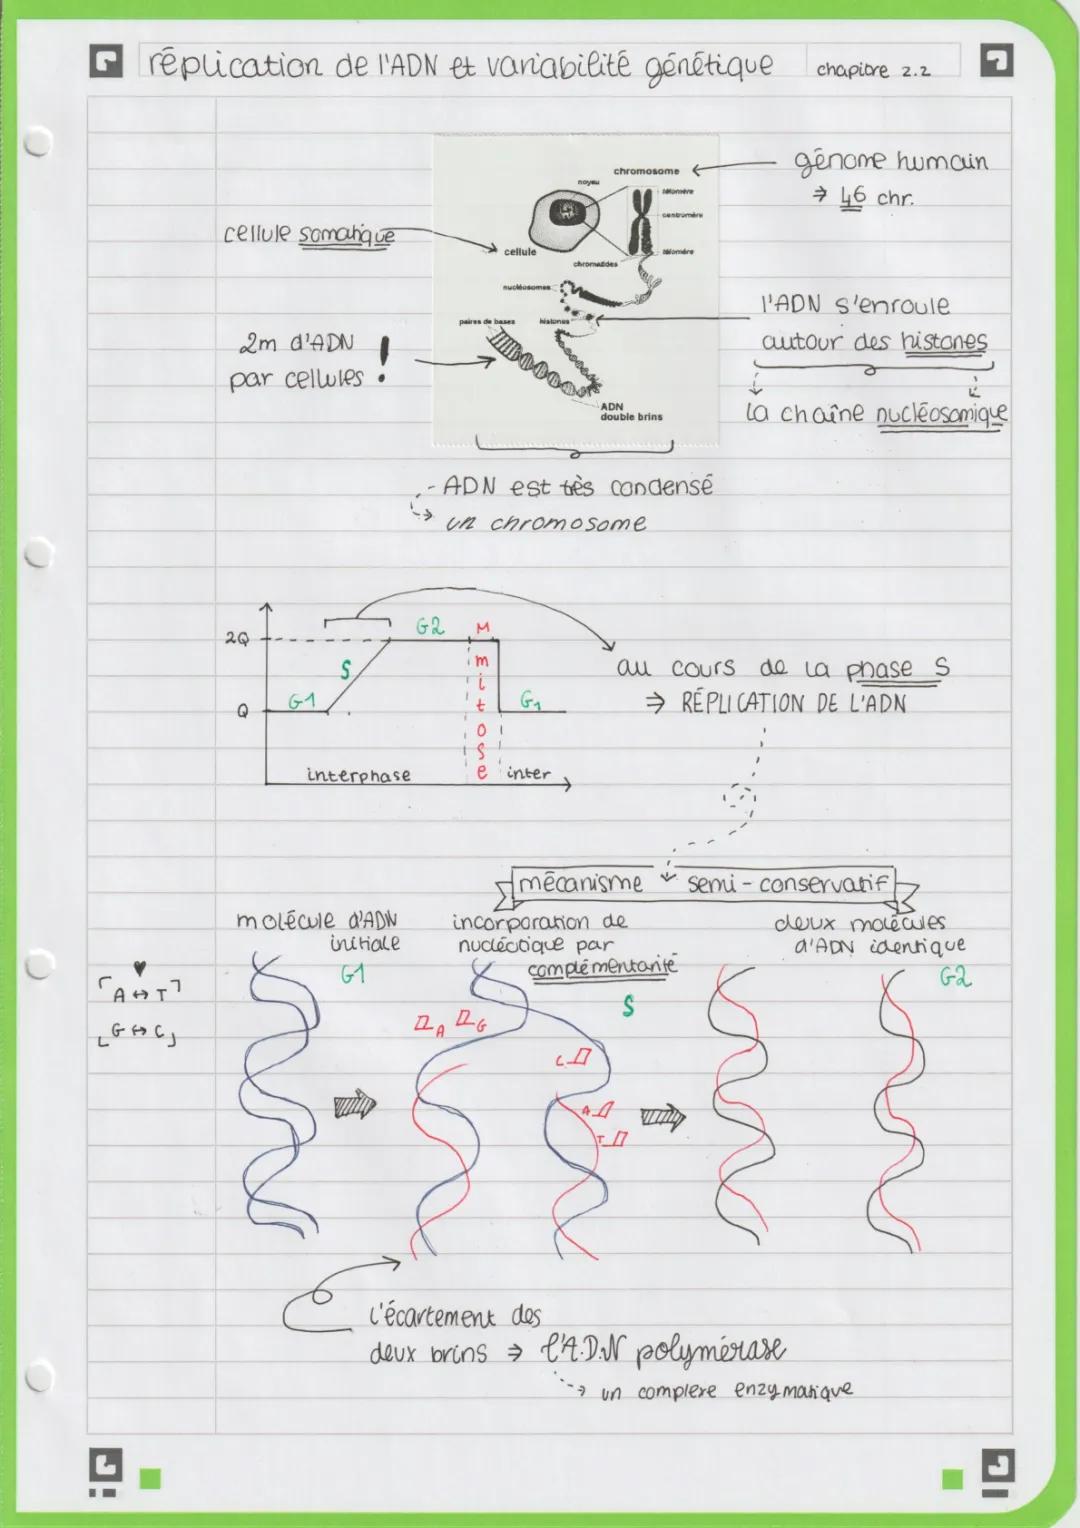 réplication de l'ADN et variabilité génétique
chapitre 2.2
génome humain
⇒ 46 chr.
chromosome
noyau
télomère
centromère
télomère
cellule
chromatides
nucléosomes
histones
paires de bases
ADN
double brins
cellule somatique
l'ADN s'enroule
autour des histones
la chaîne nucléosomique
2m d'ADN
par cellules !
- ADN est très condensé
un chromosome
2Q
Q
G1
S
G2
M
mitose
G1
interphase
inter
au cours de la phase S
⇒ RÉPLICATION DE L'ADN
mécanisme semi-conservatif
molécule d'ADN
initiale
G1
incorporation de
nucléotique par
complémentarité
S
deux molécules
d'ADN identique
G2
♥
A ↔ T
G ↔ C
A
G
C
A
T
l'écartement des
deux brins ⇒ l'A.D.N polymérase
un complexe enzymatique